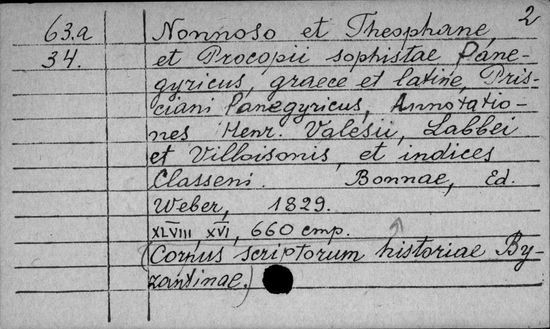 2
63.a Nonnoso et Theophane,
34. et Procopii sophistae Pane-
gyricus, graece et latine, Pris-
ciani Panegyricus, Annotatio-
nes Henr. Valesii, Labbei
et Villoisonis, et indices
Classeni. Bonnae, Ed.
Weber, 1829.
XLVIII, XVI, 660 cmp.
(Corpus scriptorum historiae By-
zantinae.)